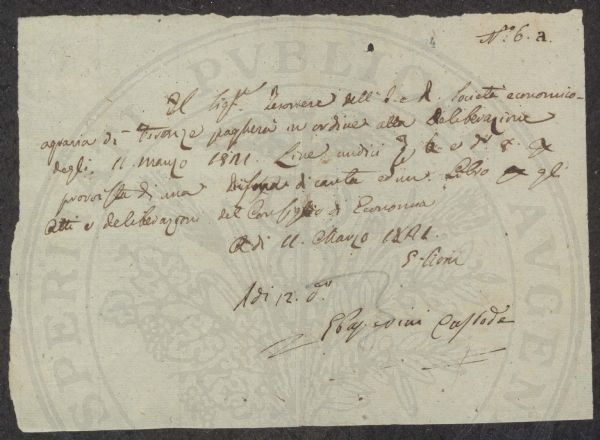 N.º 6. a.
Il Sig.r Tesoriere dell' I. e R. Società economico-
agraria di Firenze pagherà in ordine alla deliberazione
degli 11 Marzo 1821. Lire undici 7, 6 e d. 8 p
provvista di una di carta ed un Libro p gli
Atti e deliberazioni del Consiglio di Economia
A dì 11. Marzo 1821.
Adi 12. do
Custode